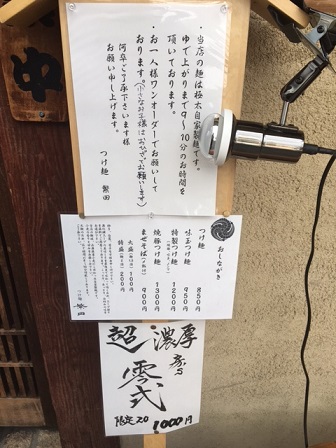 ・当店の麺は極太自家製麺です。
ゆで上がりまで9～10分のお時間を
頂いております。
・お一人様ワンオーダーでお願いして
おります。(小さなお子様はおひざでお願いします)
何卒ご了承下さいます様
お願い申し上げます。
つけ麺 繁田
おしながき
つけ麺 850円
味玉つけ麺 950円
特製つけ麺 1200円
焼豚つけ麺 1300円
まぜそば 900円
大盛 100円
特盛 200円
超濃厚
零式
限定20
1000円